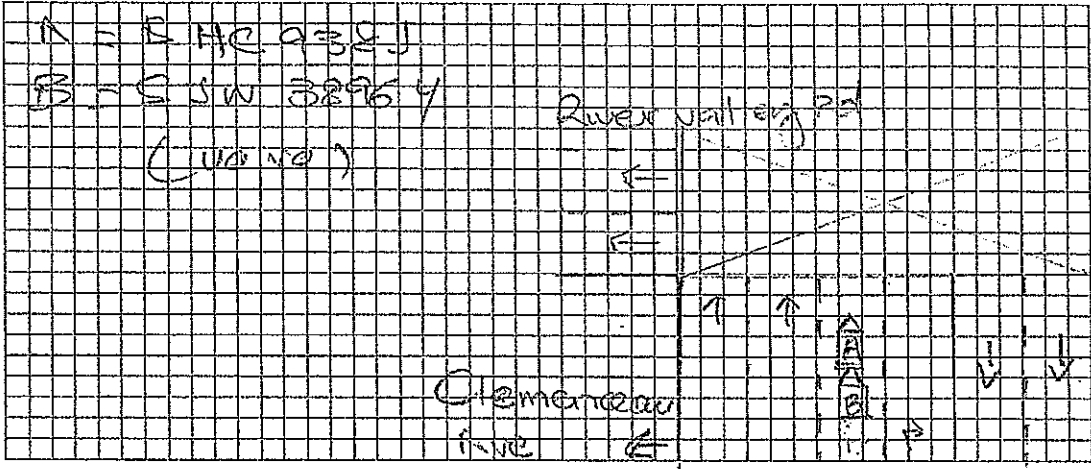 A = SHC 9381 J
B = SJW 3896 Y
River valley Rd
A
B
Clemenceau
Ave